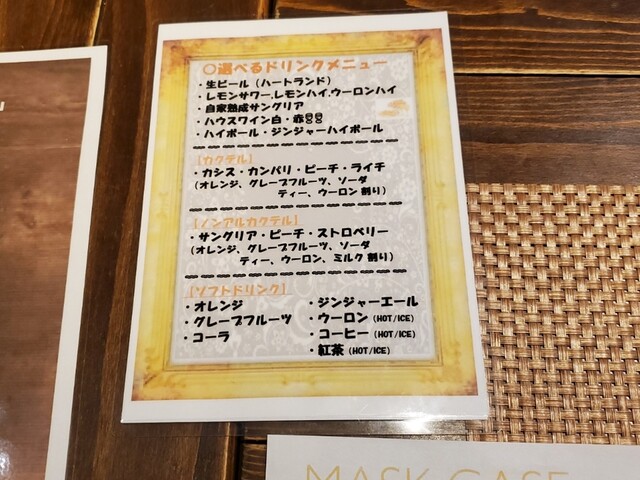 ○選べるドリンクメニュー
・生ビール（ハートランド）
・レモンサワー,レモンハイ,ウーロンハイ
・自家熟成サングリア
・ハウスワイン白・赤
・ハイボール・ジンジャーハイボール
【カクテル】
・カシス・カンパリ・ピーチ・ライチ
（オレンジ、グレープフルーツ、ソーダ
ティー、ウーロン 割り）
【ノンアルカクテル】
・サングリア・ピーチ・ストロベリー
（オレンジ、グレープフルーツ、ソーダ
ティー、ウーロン、ミルク 割り）
【ソフトドリンク】
・オレンジ
・グレープフルーツ
・コーラ
・ジンジャーエール
・ウーロン（HOT/ICE）
・コーヒー（HOT/ICE）
・紅茶（HOT/ICE）
MASK CASE